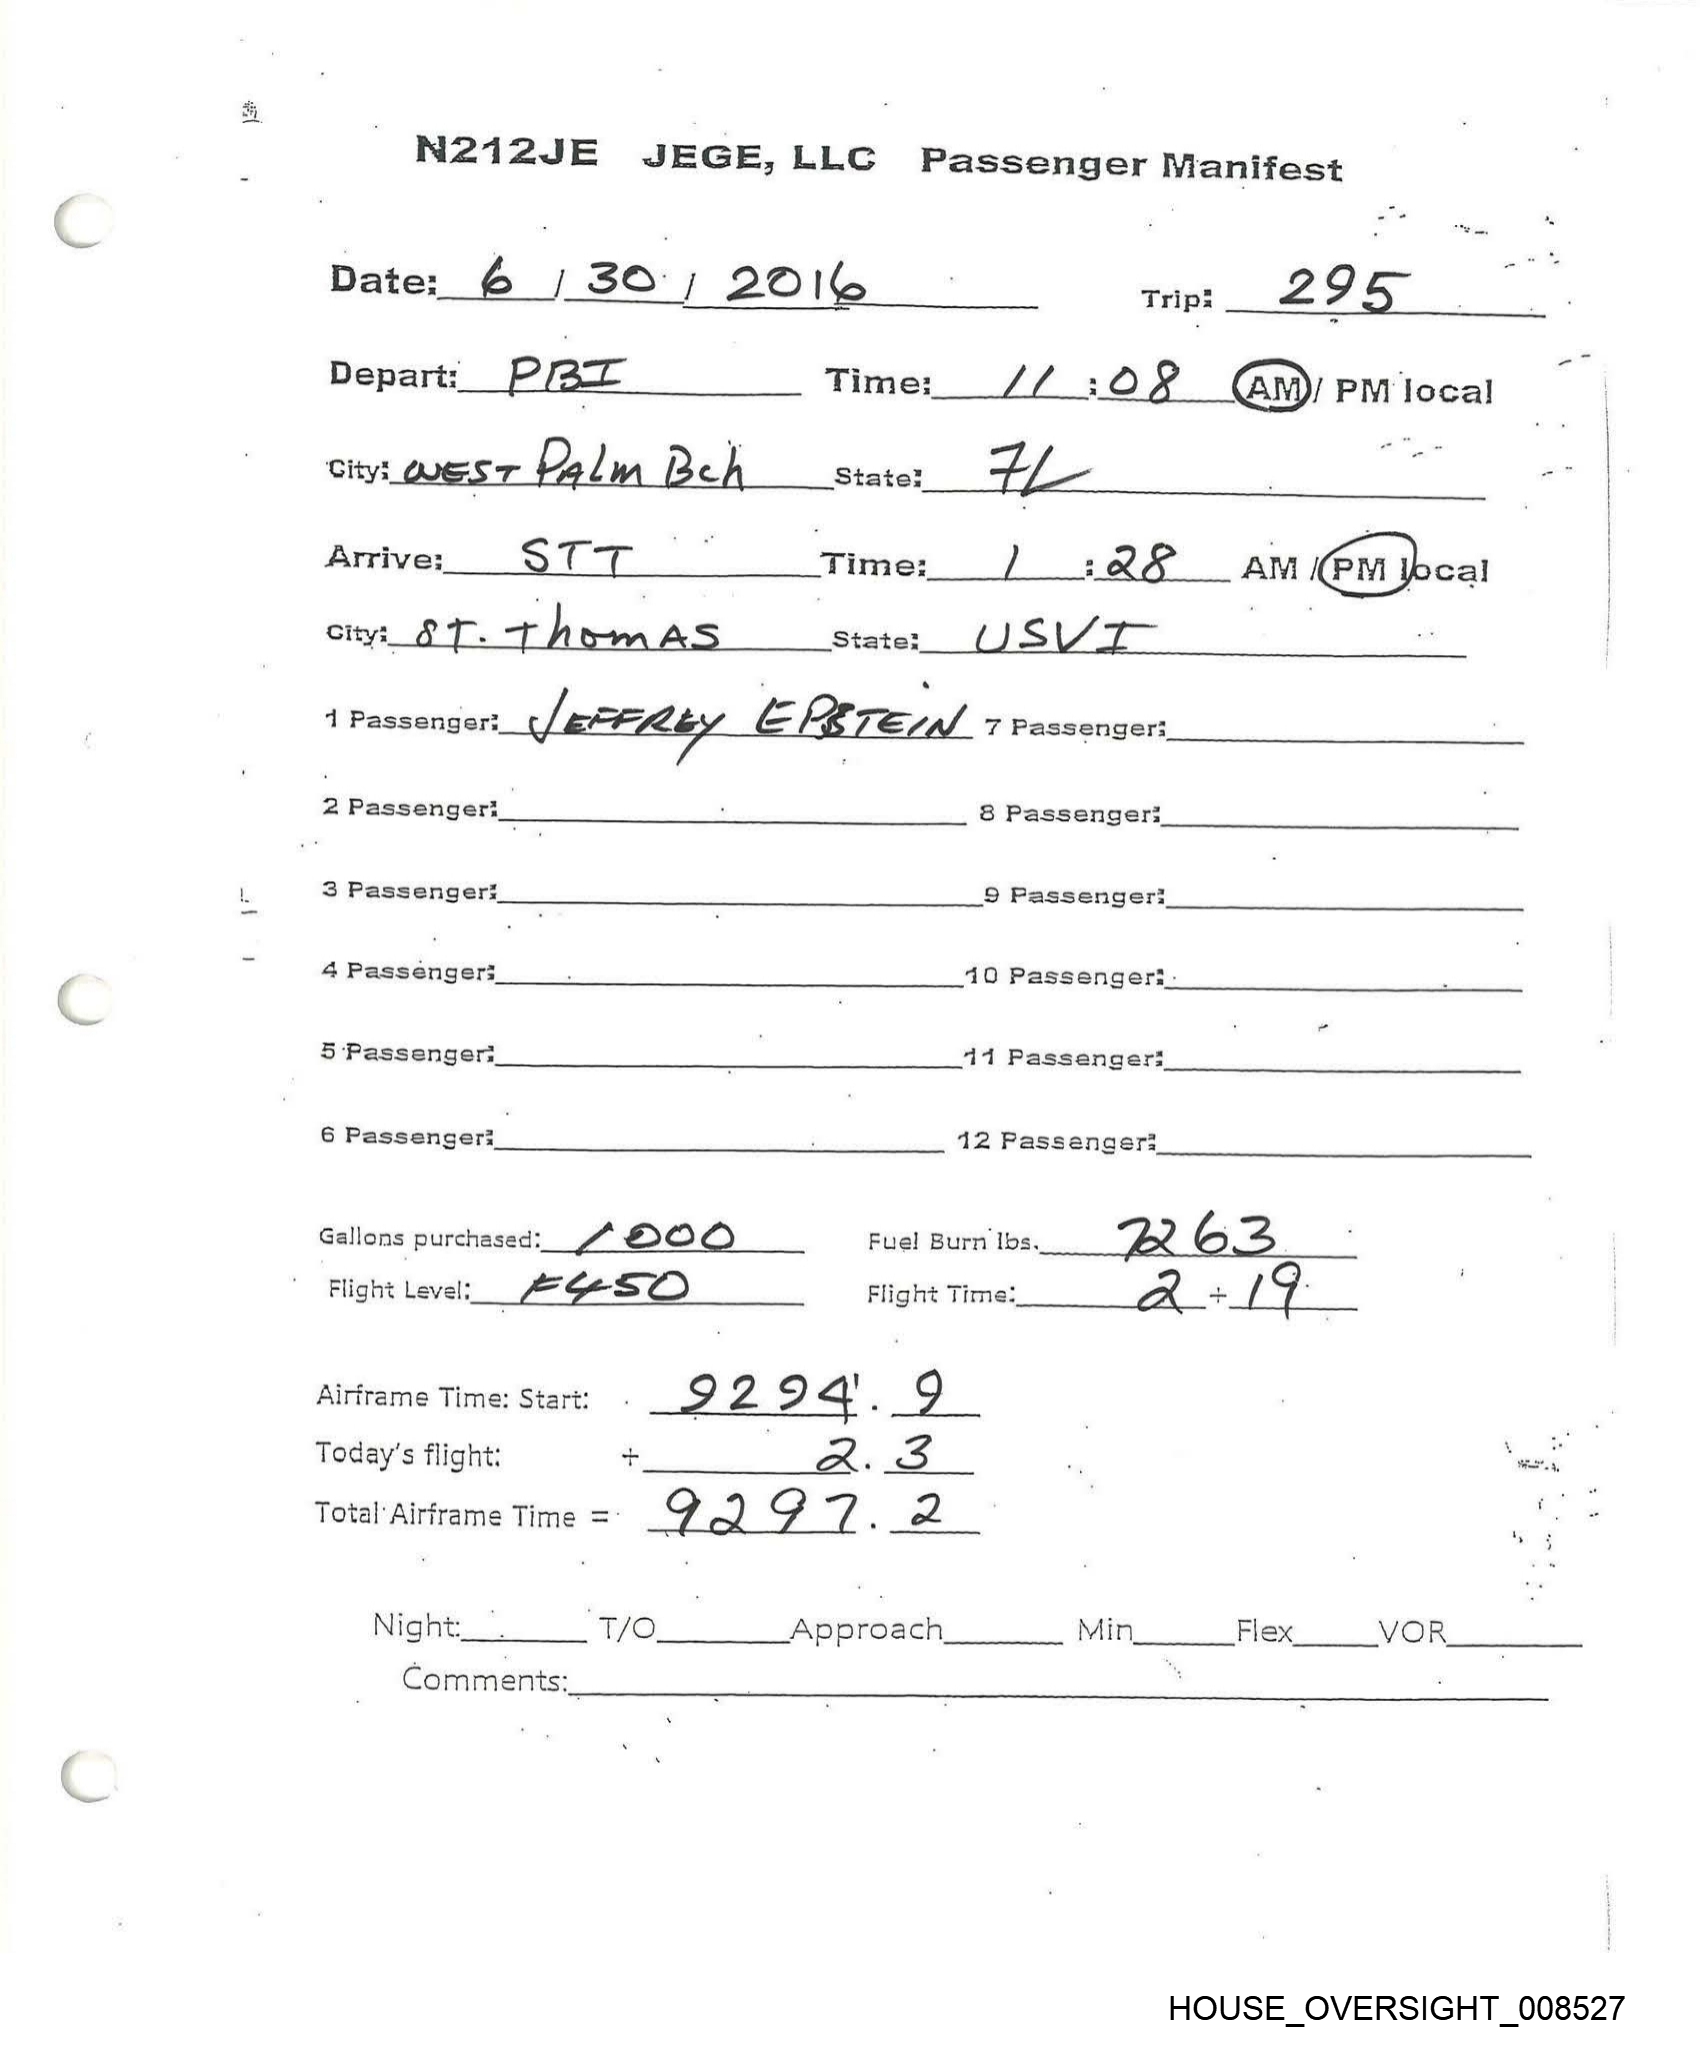 N212JE JEGE, LLC Passenger Manifest
Date: 6 / 30 / 2016 Trip: 295
Depart: PBI Time: 11 : 08 AM / PM local
City: WEST PALM Bch State: FL
Arrive: STT Time: 1 : 28 AM / PM local
City: ST. Thomas State: USVI
1 Passenger: JEFFREY EPSTEIN 7 Passenger:
2 Passenger: 8 Passenger:
3 Passenger: 9 Passenger:
4 Passenger: 10 Passenger:
5 Passenger: 11 Passenger:
6 Passenger: 12 Passenger:
Gallons purchased: 1000 Fuel Burn lbs. 7263
Flight Level: F450 Flight Time: 2 + 19
Airframe Time: Start: 9294 . 9
Today's flight: + 2 . 3
Total Airframe Time = 9297 . 2
Night: T/O Approach Min Flex VOR
Comments:
HOUSE_OVERSIGHT_008527